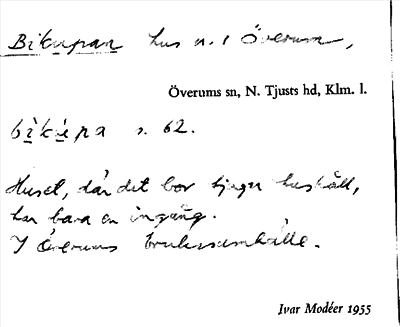 Bikupan hus n. i Överum,
Överums sn, N. Tjusts hd, Klm. l.
bìkùpa s. 62.
Huset, där det bor tjugo hushåll,
har bara en ingång.
I Överums brukssamhälle.
Ivar Modéer 1955